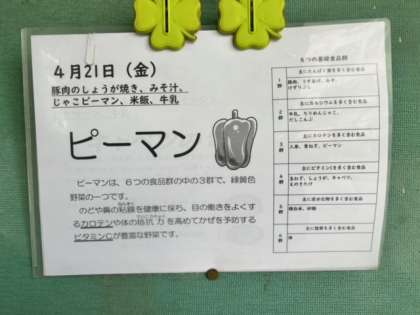 4月21日（金）
豚肉のしょうが焼き、みそ汁、
じゃこピーマン、米飯、牛乳
ピーマン
ピーマンは、6つの食品群の中の3群で、緑黄色
野菜の一つです。
のどや鼻の粘膜を健康に保ち、目の働きをよくす
るカロテンや体の抵抗力を高めてかぜを予防する
ビタミンCが豊富な野菜です。
6つの基礎食品群
1群
主にたんぱく質を多く含む食品
2群
主にカルシウムを多く含む食品
牛乳、ちりめんじゃこ、
だしこんぶ
3群
主にカロテンを多く含む食品
人参、青ねぎ、ピーマン
4群
主にビタミンCを多く含む食品
玉ねぎ、しょうが、キャベツ、
えのきたけ
5群
主に炭水化物を多く含む食品
精白米、砂糖
6群
主に脂肪を多く含む食品
油